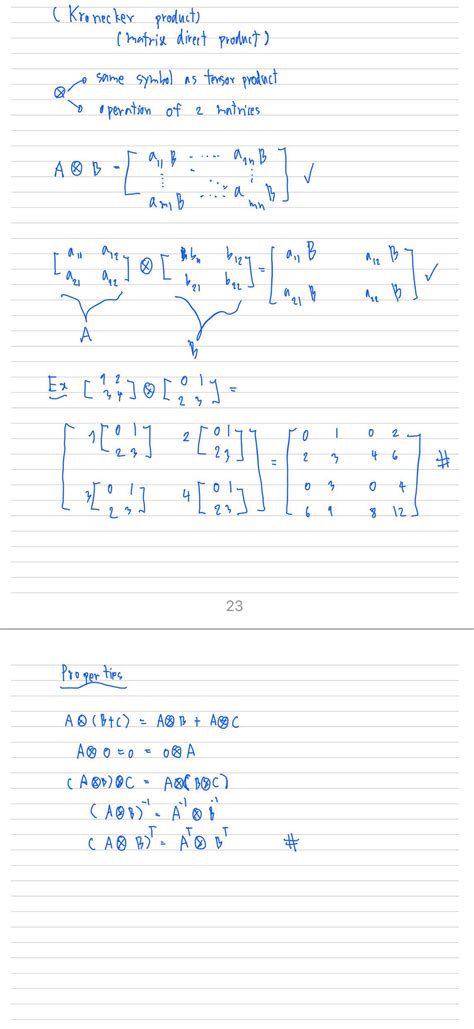 (Kronecker product)
(matrix direct product)
⊗ same symbol as tensor product
operation of 2 matrices
A ⊗ B = [ a₁₁B ..... a₁ₙB
⋮ ⋱ ⋮
aₘ₁B ..... aₘₙB ] ✓
[ a₁₁ a₁₂ ] ⊗ [ b₁₁ b₁₂ ] = [ a₁₁B a₁₂B ]
[ a₂₁ a₂₂ ] [ b₂₁ b₂₂ ] [ a₂₁B a₂₂B ] ✓
A B
Ex [ 1 2 ] ⊗ [ 0 1 ] =
[ 3 4 ] [ 2 3 ]
[ 1[ 0 1 ] 2[ 0 1 ] ] = [ 0 1 0 2 ]
[ 2 3 ] [ 2 3 ] [ 2 3 4 6 ] #
3[ 0 1 ] 4[ 0 1 ] [ 0 3 0 4 ]
[ 2 3 ] [ 2 3 ] [ 6 9 8 12 ]
23
Properties
A⊗(B+C) = A⊗B + A⊗C
A⊗0 = 0 = 0⊗A
(A⊗B)⊗C = A⊗(B⊗C)
(A⊗B)⁻¹ = A⁻¹ ⊗ B⁻¹
(A⊗B)ᵀ = Aᵀ⊗Bᵀ #